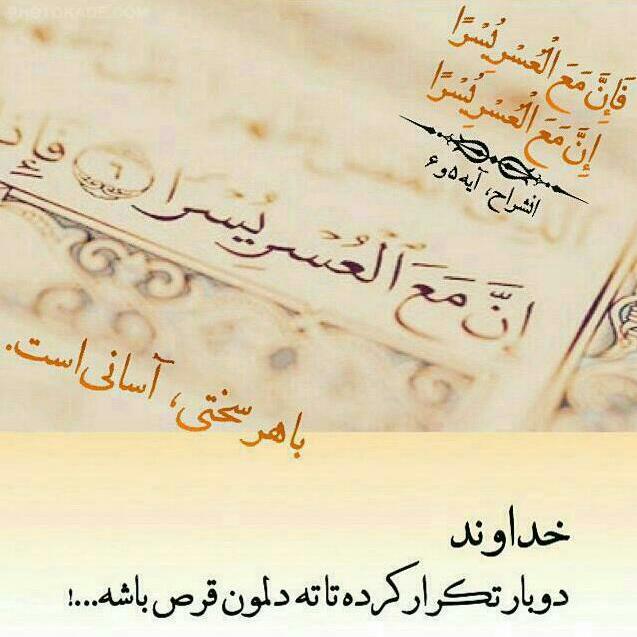 PHOTOKADE.COM
فَإِنَّ مَعَ الْعُسْرِ يُسْرًا
إِنَّ مَعَ الْعُسْرِ يُسْرًا
انشراح، آیه ۵و۶
إِنَّ مَعَ ٱلْعُسْرِ يُسْرًا ۶ فَإِذَا
با هر سختی، آسانی است.
خداوند
دوبار تکرار کرده تا ته دلمون قرص باشه...!